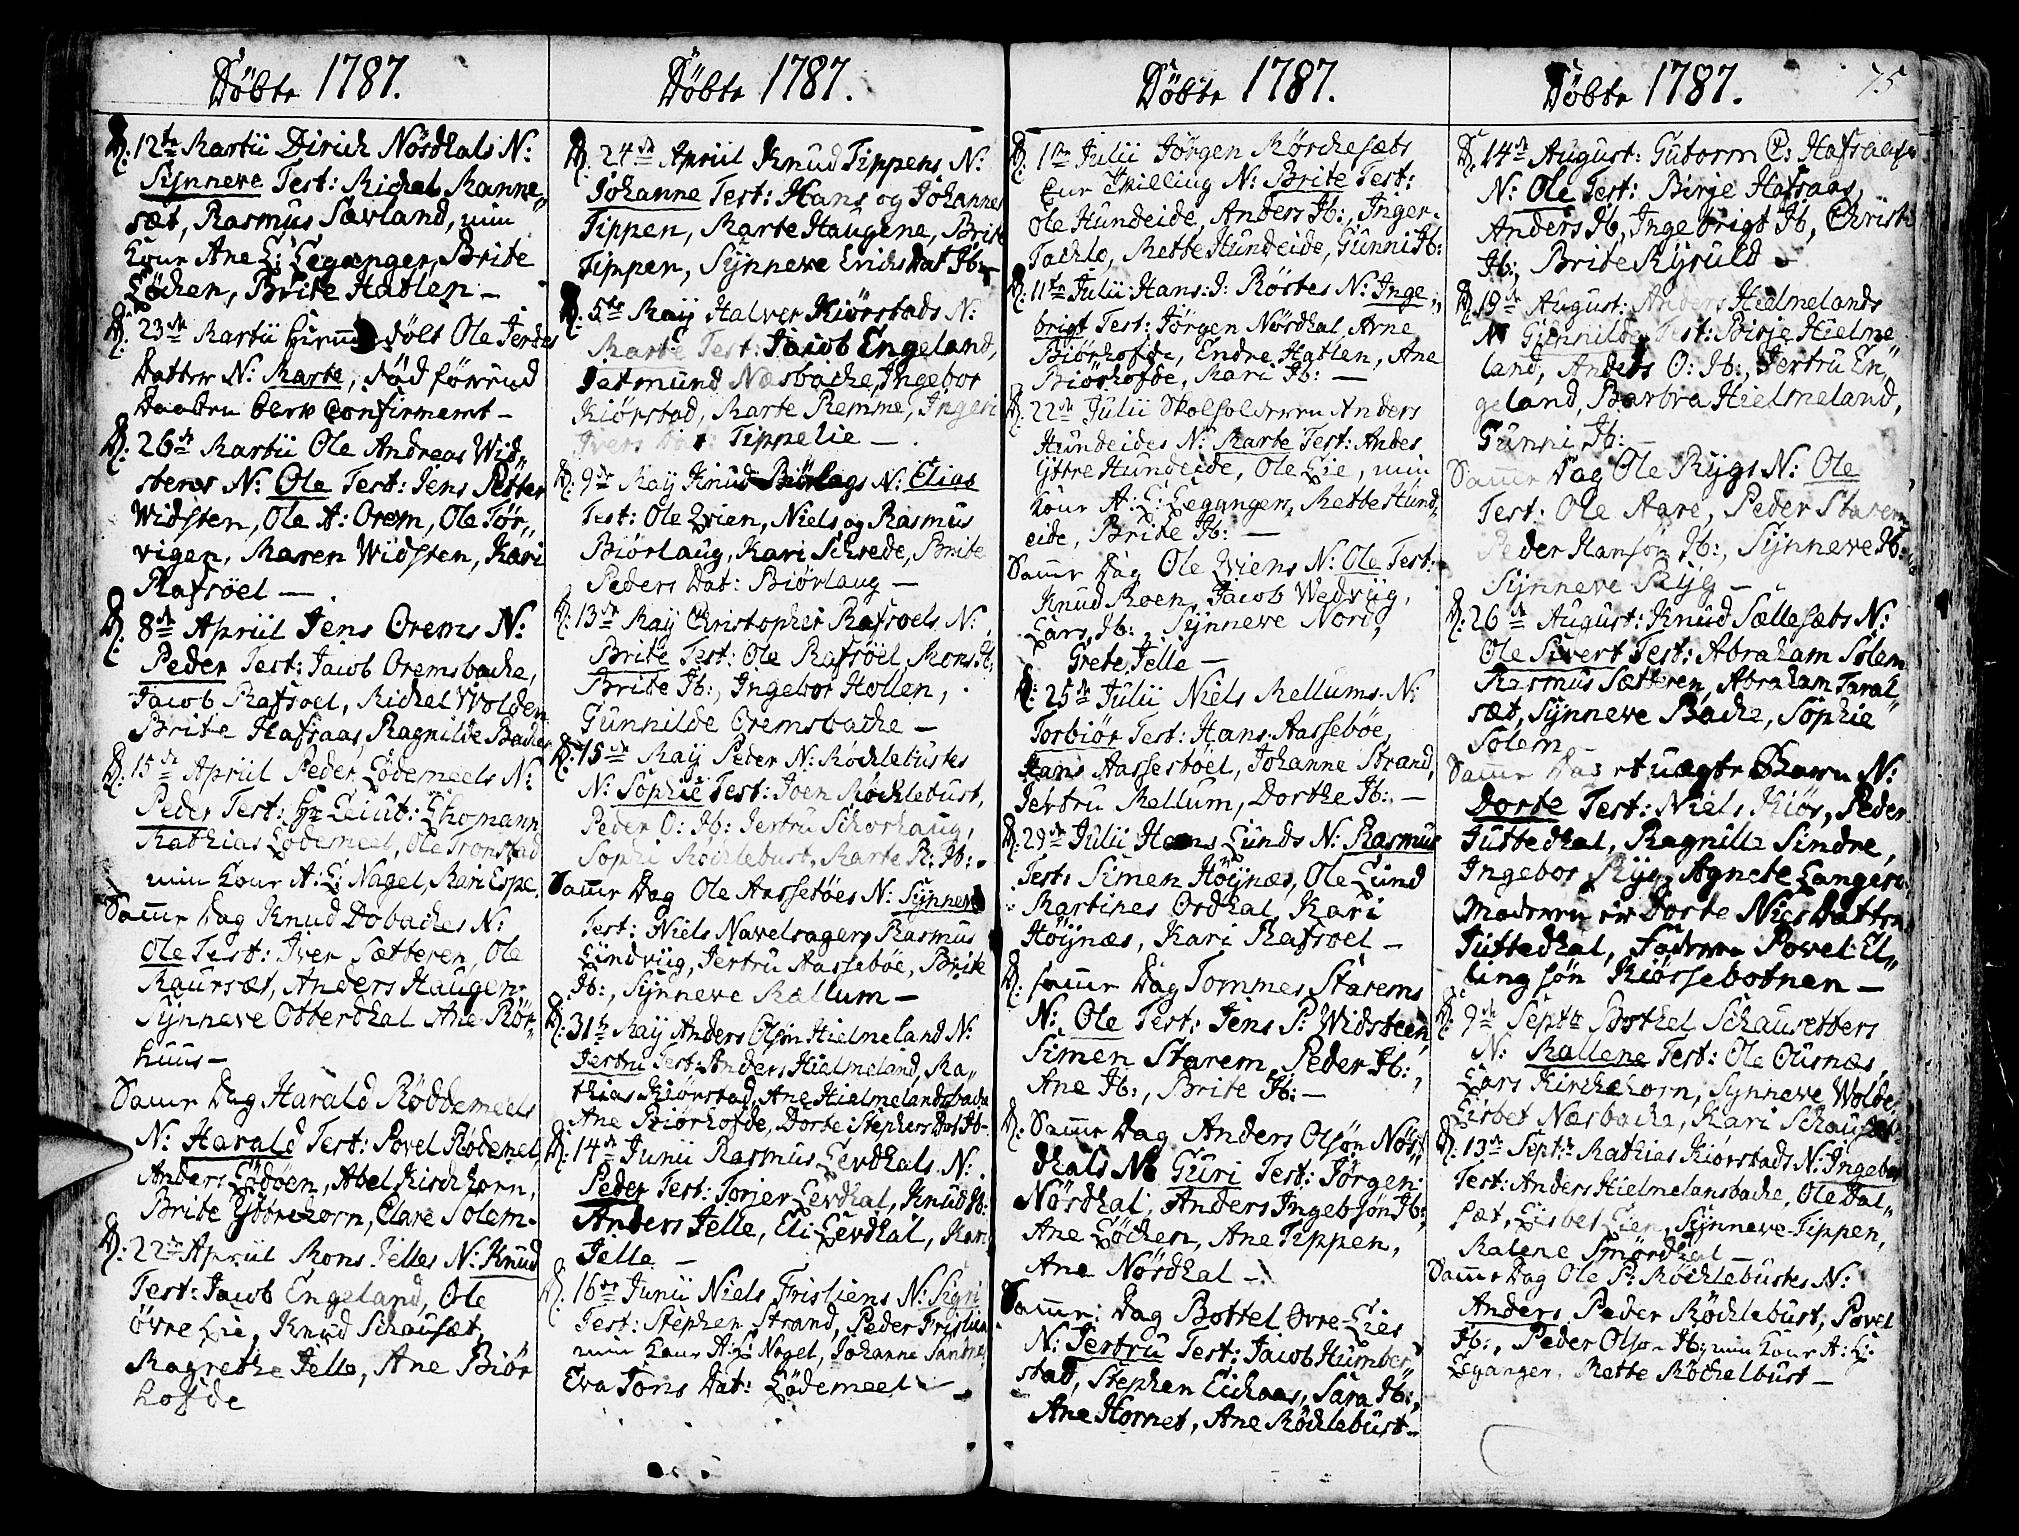 Döbte 1787.
D: 12te Martii Dirich Nördhals N:
Synneve Test: Michel Manne„
sæt, Rasmus Sævland, min
Kone Ane L: Leganger, Brite
Löchen, Brite Hatlen –
D: 23de Martii dölt Ole Jerdes
Datter N: Marte, föd förend
confirmert –
D: 26de Martii Ole Andreas Wid„
stens N: Ole Test: Jens Petter
Widsten, Ole A: Orem, Ole Tör„
vigen, Maren Widsten, Kari
Rafsöel –
D: 8de Apriil Jens Orems N:
Peder Test: Jacob Oremsbache,
Jacob Rafsoel, Michel Wolden
Brite Hafsaas, Ragnilde Bache
D: 15de Apriil Peder Lödemeels N:
Peder Test: Hr Leiut: Thomann
Mathias Lödemeel, Ole Tronstad
min Kone A: L: Nagel, Mari Espe.
Samme Dag Knud Dobaches N:
Ole Test: Iver Sætteren, Ole
Maursæt, Anders Haugen
Synneve Otterdhal Ane Mör„
huus –
Samme Dag Harald Röddemeels
N: Harald Test: Povel Rödemel,
Anders Lödöen, Abel Kirchhorn,
Brite Yttrehorn, Clare Solem.
D: 22de Apriil Mons Jelles N: Knud
Test: Jacob Engeland, Ole
övre Lie, Knud Schausæt,
Magrethe Jelle, Ane Biör
hofde
Döbte 1787.
D: 24de Apriil Knud Tippens N:
Johanne Test: Hans og Johannes
Tippen, Marte Haugene, Brite
Tippen, Synneve Erichs Dat Jb: –
D: 5te May Halver Kiörstads N:
Marte Test: Jacob Engeland,
Jetmund Næsbache, Ingebor
Kiörstad, Marte Remme, Ingeri
Ivers Dat: Tippelie –
D: 9de May Knud Biörlogs N: Elias
Test: Ole Qvien, Niels og Rasmus
Biörlaug, Kari Schrede, Brite
Peders Dat: Biörlaug –
D: 13de May Christopher Rafsoels N:
Brite Test: Ole Rafsöel, Mons Jb:
Brite Jb:, Ingebor Hollen,
Gunnilde Oremsbache –
D: 15de May Peder N: Röchlebustes
N: Sophie Test: Joen Röchlebust,
Peder O: Jb: Jertru Schorhaug,
Sophi Röchlebust, Marte R: Jb:
Samme Dag Ole Aassetöes N: Synneve
Test: Niels Navelsager, Rasmus
Lindviig, Jertru Aasseböe, Brite
Jb:, Synneve Mællum –
D: 31te May Anders Olsön Hielmeland N:
Jertru Test: Anders Hielmeland, Ma„
thias Kiörstad, Ane Hielmelandsbache
Ane Biörhofde, Dorte Stephens Dat Jb:
D: 14de Junii Rasmus Levdhals N:
Peder Test: Torjer Levdhal, Knud Jb:
Anders Jelle, Eli Levdhal, Kari
Jelle –
D: 16de Junii Niels Fristiens N: Sigri
Test: Stephen Strand, Peder Fristien
min Kone A: L: Nagel, Johanne Sandne,
Eva Tons Dat: Lödemeel –
Döbte 1787.
D: 1te Julii Jörgen Mörchesæts
N: Brite Test:
Ole Hundeide, Anders Jb:, Inger
Tachle, Mette Hundeide, Gunni Jb:
D: 11te Julii Hans: J: Röstes N: Inge„
brigt Test: Jörgen Nördhal, Arne
Biörhofde, Endre Hatlen, Ane
Biörhofde, Mari Jb: –
D: 22de Julii Anders
Hundeides N: Marte Test: Andes
Yttre Hundeide, Ole Lie, min
Kone A: L: Leganger, Mette Hund„
eide, Brite Jb: –
Samme Dag Ole Qviens N: Ole Test:
Knud Moen, Jacob Wedviig,
Lars Jb: Synneve Nord,
Grete Jelle –
D: 25de Julii Niels Mellums N:
Torbiör Test: Hans Aasseböe,
Hans Aassestöel, Johanne Strand,
Jertru Mellum, Dorthe Jb: –
D: 29de Julii Hans Lunds N: Rasmus
Test: Simen Höynæs, Ole Lund
Martines Ordhal, Kari
Höynæs, Kari Rafsoel –
D: samme Dag Tommes Starems
N: Ole Test: Jens P: Widsteen,
Simen Starem, Peder Jb:,
Ane Jb:, Brite Jb: –
D: Samme Dag Anders Olsön Nör„
dhals N: Guri Test: Jörgen
Nördhal, Anders Ingebsön Jb:,
Ane Löchen, Ane Tippen,
Ane Nördhal –
Samme: Dag Bottel Övre-Lies
N: Jertru Test: Jacob Humber„
stad, Stephen Eichaas, Sara Jb:,
Ane Hornet, Ane Röchlebust –
Döbte 1787.
75
D: 14de August: Gutorm C: Hafsaases
N: Ole Test: Birje Hafsaas,
Anders Jb, Ingebrigt Jb, Christi
Jb:, Brite Myruld –
D: 19de August: Anders Hielmelands
N: Gunnilde Test: Birje Hielme„
land, Anders O: Jb:, Jertru En„
geland, Barbra Hielmeland,
Gunni Jb: –
Samme Dag Ole Rygs N: Ole
Test: Ole Aare, Peder Starem
Peder Hansön Jb:, Synneve Jb:
Synneve Ryg –
D: 26de August: Knud Sællesæts N:
Ole Sivert Test: Abraham Solem
Rasmus Sætteren, Abraham Taral„
sæt, Synneve Bache, Sophie
Solem –
Samme Dag et uægte Barn N:
Dorte Test: Niels Kiös, Peder
Tuttedhal, Ragnille Sindre,
Ingebor Ryg, Agnete Langeset
Moderen er Dorte Niels Datter
Tuttedhal, Faderen Povel El„
lingsön Kiössebotnen –
D: 9de Septbr Botthel Schausetters
N: Mallene Test: Ole Ousnæs,
Lars Kirchehorn, Synneve Wolde,
Lisbet Næsbache, Kari Schausæt
D: 13de Septbr Mathias Kiörstads N: Ingebor
Test: Anders Hielmelansbache, Ole Dal„
sæt, Lisbet Lien, Synneve Tippen,
Malene Smördhal –
Samme Dag Ole P: Röchlebustes N:
Anders, Peder Röchlebust, Povel
Jb:, Peder Olsön Jb, min Kone A: L:
Leganger, Mette Röchelbust –